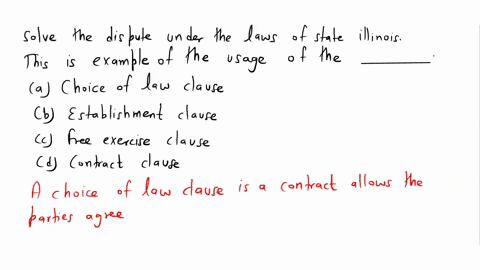 Solve the dispute under the laws of state illinois.
This is example of the usage of the ________.
(a) Choice of law clause
(b) Establishment clause
(c) Free exercise clause
(d) Contract clause
A choice of law clause is a contract allows the
parties agree